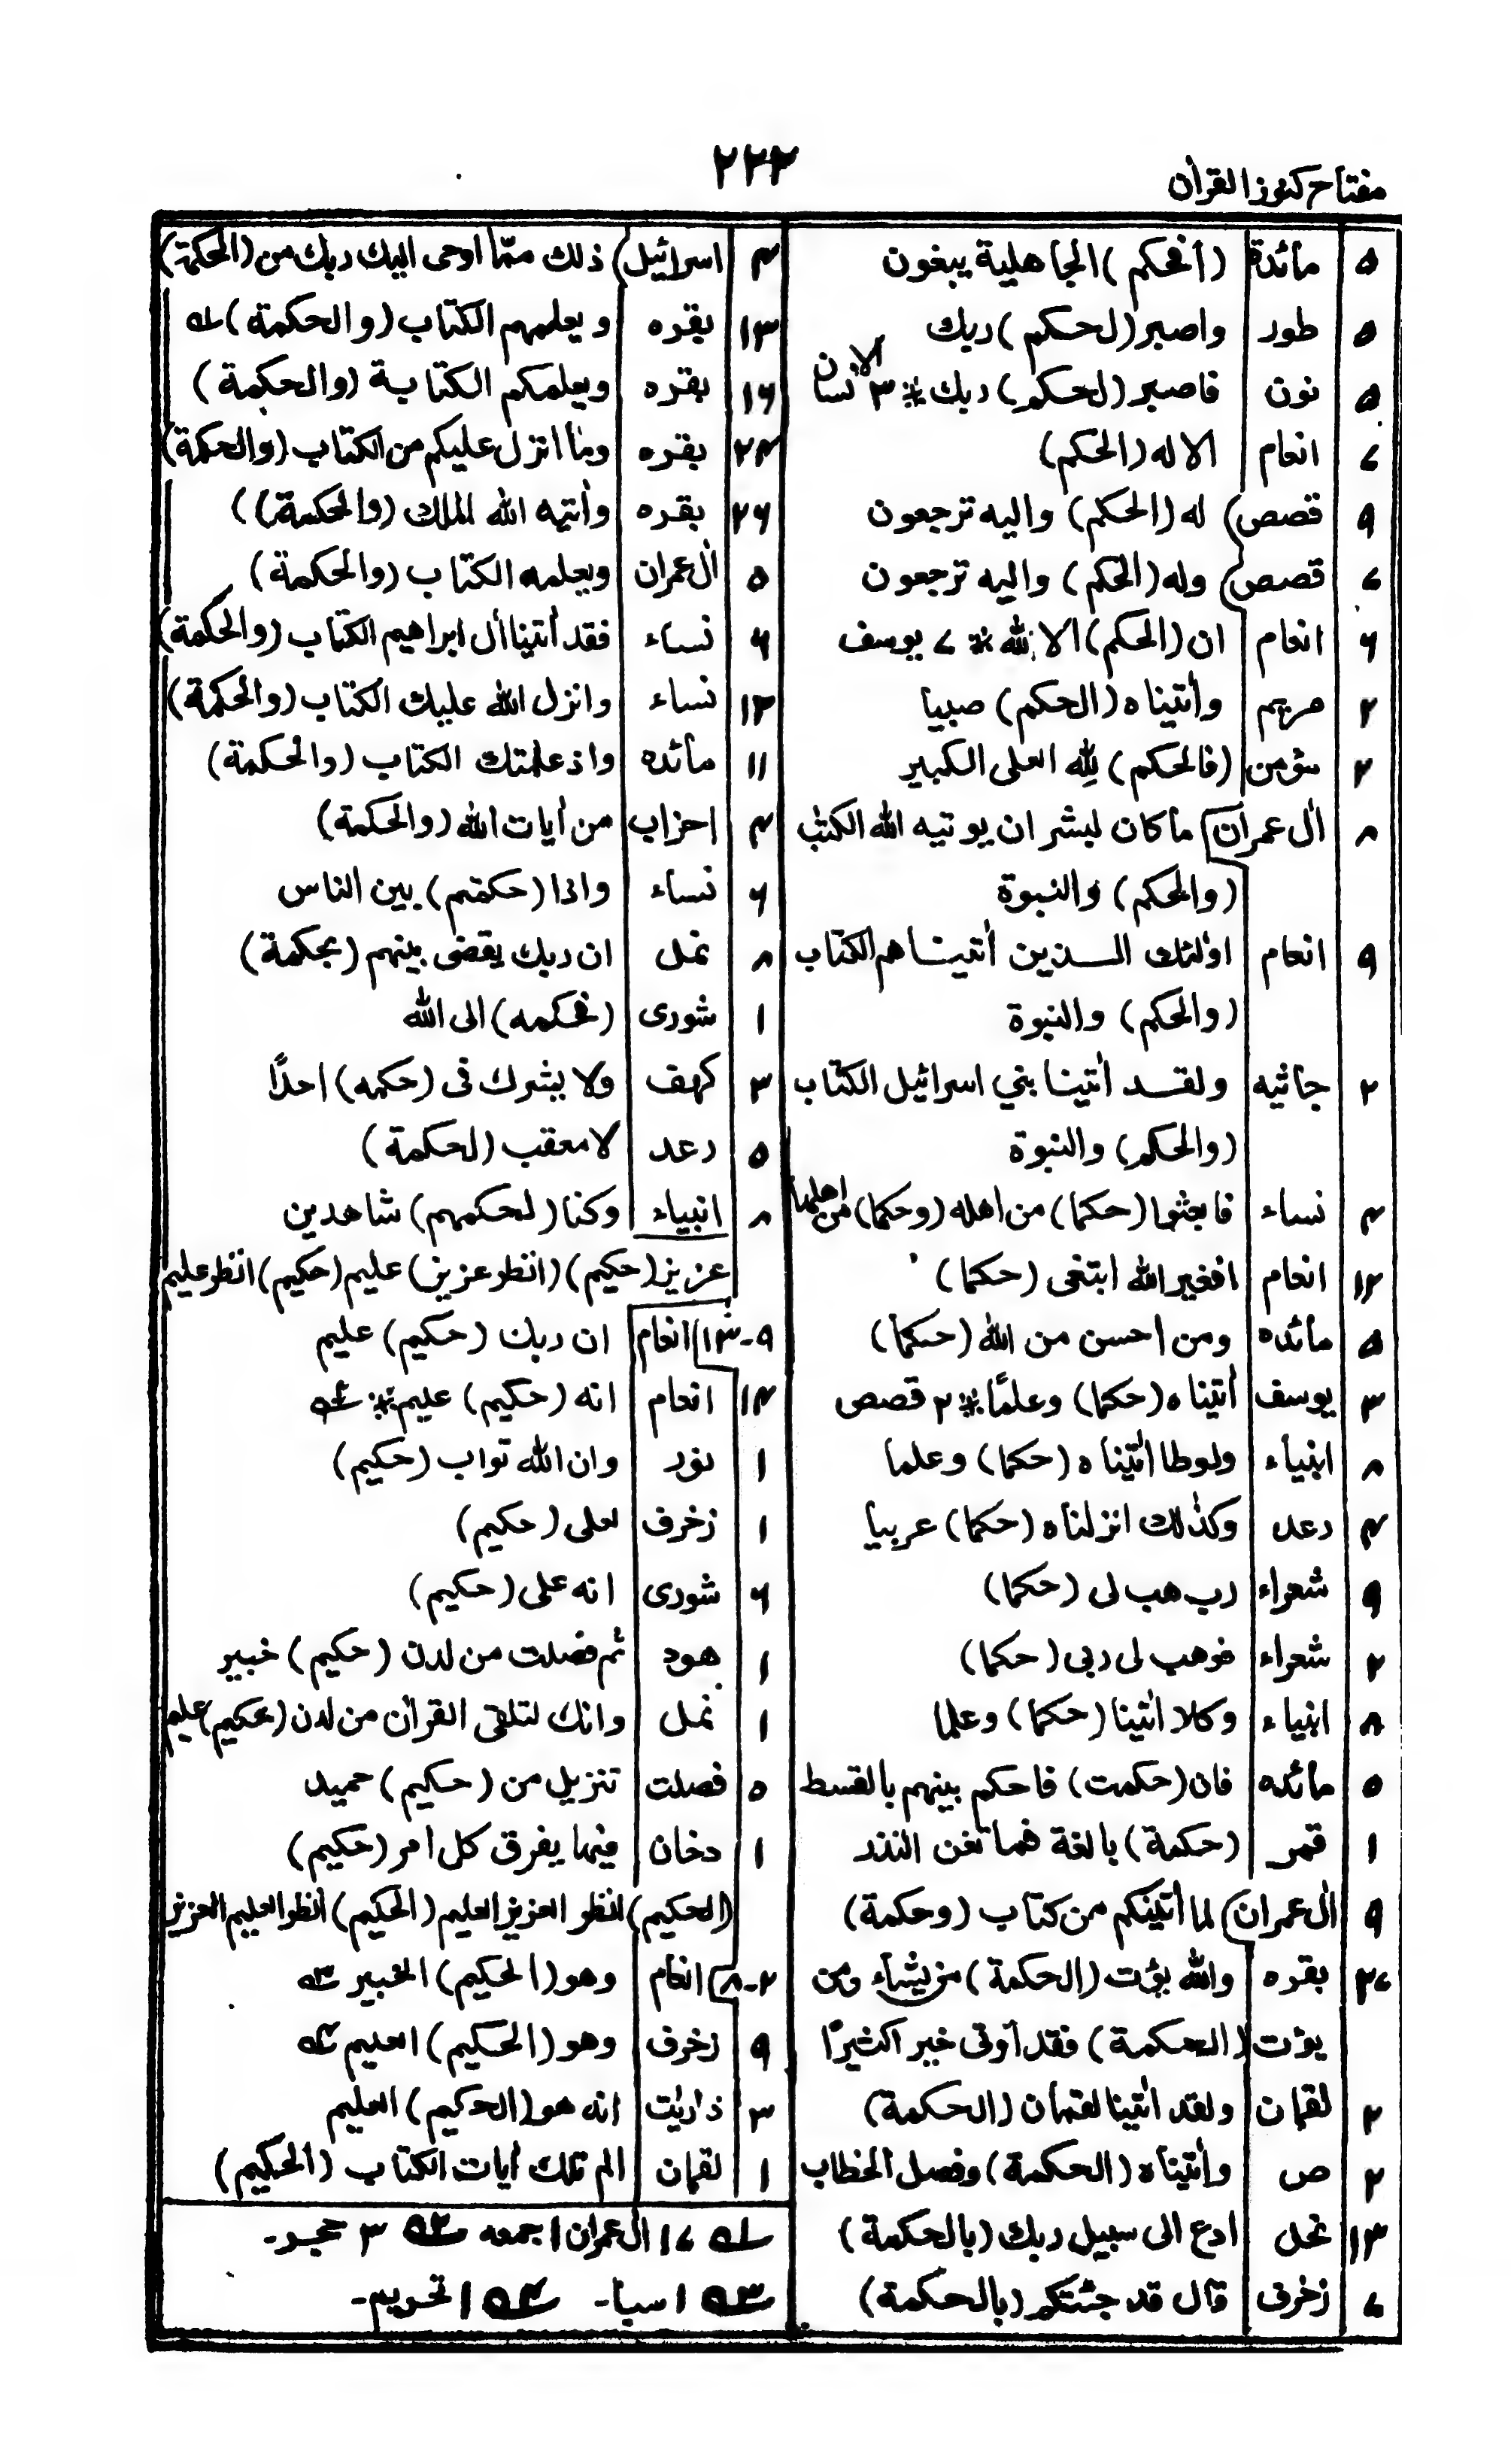 مفتاح کنوز القرأن
۲۲۲
۵ مأئدة (أفحکم) الجاهلیة یبغون
۵ طور واصبر (لحکم) ربك
۵ نون فاصبر (لحکم) ربك * ۳ الانسان
۷ انعام الا له (الحکم)
۹ قصص له (الحکم) والیه ترجعون
۷ قصص وله (الحکم) والیه ترجعون
۶ انعام ان (الحکم) الا لله * ۷ یوسف
۲ مریم وأتیناه (الحکم) صبیا
۲ مؤمن (فالحکم) لِلّٰه العلی الکبیر
۸ اٰل عمران ماکان لبشر ان یوتیه الله الکتٰب
(والحکم) والنبوة
۹ انعام اولئك الـذین أتیناهم الکتاب
(والحکم) والنبوة
۲ جاثیه ولقد أتینا بنی اسرائیل الکتاب
(والحکم) والنبوة
۴ نساء فابعثوا (حکما) من اهله (وحکما) من اهلها
۱۴ انعام افغیر الله ابتغی (حکما)
۵ مائده ومن احسن من الله (حکما)
۳ یوسف أتیناه (حکما) وعلمًا * ۲ قصص
۸ ابنیاء ولوطا اٰتیناه (حکما) وعلما
۴ رعد وکذٰلك انزلناه (حکما) عربیا
۹ شعراء رب هب لی (حکما)
۲ شعراء فوهب لی ربی (حکما)
۸ انبیاء وکلا اٰتینا (حکما) وعلما
۵ مائده فان (حکمت) فاحکم بینهم بالقسط
۱ قمر (حکمة) بالغة فما تغن النذر
۹ اٰل عمران لما اٰتیتکم من کتاب (وحکمة)
۳۷ بقره والله یؤت (الحکمة) من یشاء ومن
یؤت (الحکمة) فقد أوتی خیر اکثیرًا
۲ لقمان ولقد اٰتینا لقمان (الحکمة)
۲ ص واٰتیناه (الحکمة) وفصل الخطاب
۱۳ نحل ادع الی سبیل ربك (بالحکمة)
۷ زخرف قال قد جئتکم (بالحکمة)
۴ اسرائیل ذلك ممّا اوحی الیك ربك من (الحکمة)
۱۳ بقره ویعلمهم الکتاب (والحکمة) ۵۱
۱۶ بقره ویعلمکم الکتابة (والحکمة)
۲۴ بقره وما انزل علیکم من الکتاب (والحکمة)
۲۶ بقره وأتیه الله الملك (والحکمة)
۵ اٰل عمران ویعلمه الکتاب (والحکمة)
۶ نساء فقد أتینا أل ابراهیم الکتاب (والحکمة)
۱۲ نساء وانزل الله علیك الکتاب (والحکمة)
۱۱ مأئده واذ علمتك الکتاب (والحکمة)
۴ احزاب من أیات الله (والحکمة)
۶ نساء واذا (حکمتم) بین الناس
۸ نمل ان ربك یقضی بینهم (بحکمة)
۱ شوری (فحکمه) الی الله
۳ کهف ولا یشرك فی (حکمه) احدًا
۵ رعد لا معقب (لحکمة)
۸ انبیاء وکنا (لحکمهم) شاهدین
عزیز (حکیم) (انظر عزیز) علیم (حکیم) انظر علیم
۹-۱۳ انعام ان ربك (حکیم) علیم
۱۴ انعام انه (حکیم) علیم *
۱ نور وان الله تواب (حکیم)
۱ زخرف لعلی (حکیم)
۶ شوری انه علی (حکیم)
۱ هود ثم فصلت من لدن (حکیم) خبیر
۱ نمل وانك لتلقی القرأن من لدن (حکیم) علیم
۵ فصلت تنزیل من (حکیم) حمید
۱ دخان فیها یفرق کل امر (حکیم)
(الحکیم) انظر العزیز العلیم (الحکیم) أنظر العلیم العزیز
۲-۸ انعام وهو (الحکیم) الخبیر ۵۳
۹ زخرف وهو (الحکیم) العلیم ۵۴
۳ ذاریٰت انه هو (الحکیم) العلیم
۱ لقمان الم تلك أیات الکتاب (الحکیم)
۵۱ ۱۷ اٰل عمران ۱ جمعه ۵۲ ۳ حجر-
۵۳ ۱ سبا- ۵۴ ۱ تحریم-